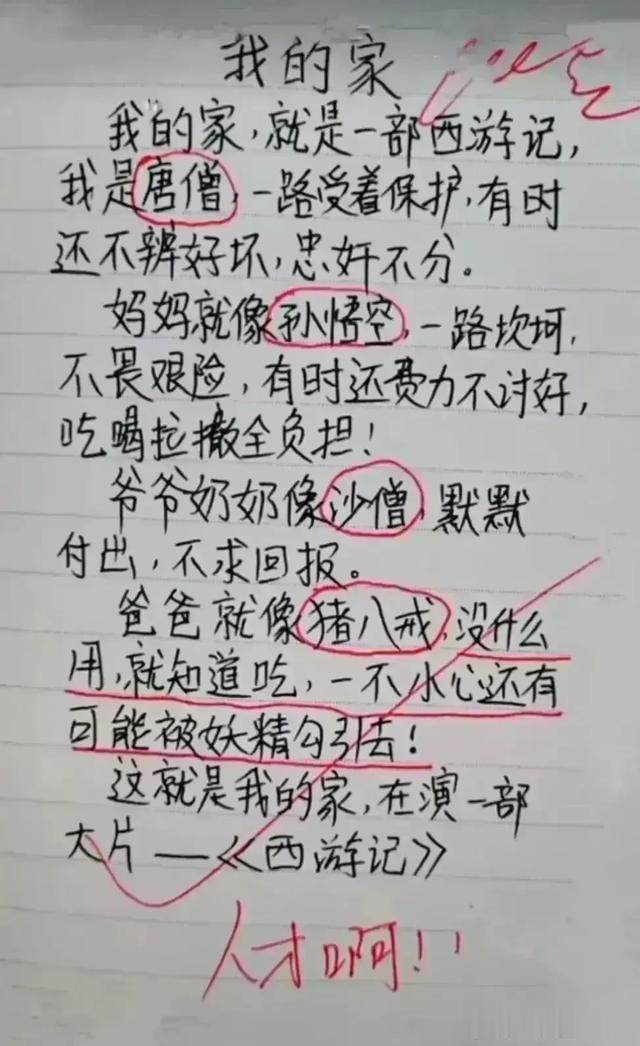 我的家
我的家,就是一部西游记,
我是唐僧,一路受着保护,有时
还不辨好坏,忠奸不分。
妈妈就像孙悟空,一路坎坷,
不畏艰险,有时还费力不讨好,
吃喝拉撒全负担!
爷爷奶奶像沙僧,默默
付出,不求回报。
爸爸就像猪八戒,没什么
用,就知道吃,一不小心还有
可能被妖精勾引去!
这就是我的家,在演一部
大片——《西游记》
人才啊!!